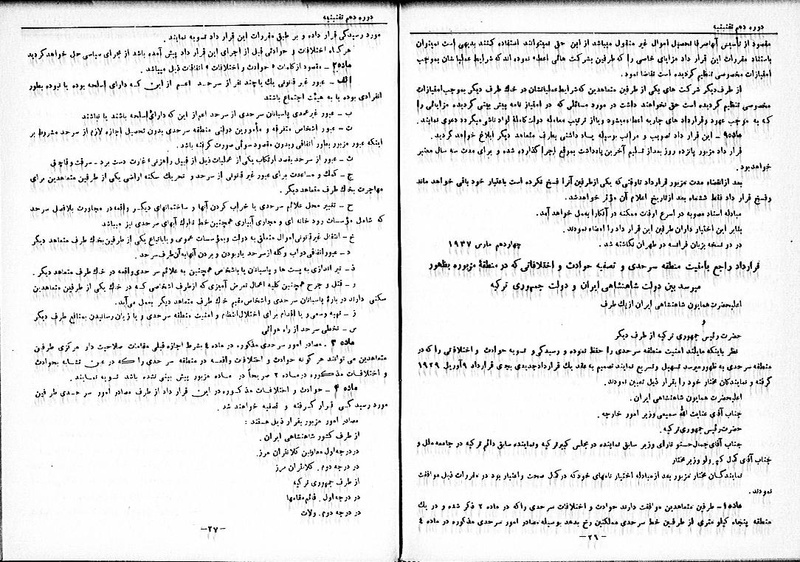 دوره دهم تقنینیه
مقصود از تأسیس آنها صرفاً تحصیل اموال غیر منقول میباشد از این حق نمیتوانند استفاده کنند بدیهی است نمیتوان
باستناد مقررات این قرار داد مزایای خاصی را که طرفین بشرکت هائی اعطاء نموده اند که شرایط عملیاتشان بموجب
امتیازات مخصوصی تنظیم گردیده است تقاضا نمود.
از طرف دیگر شرکت های یکی از طرفین متعاهدین که شرایط عملیاتشان در خاک طرف دیگر بموجب امتیازات
مخصوصی تنظیم گردیده است حق نخواهند داشت در مورد مسائلی که در امتیاز نامه پیش بینی گردیده مزایائی را
که به موجب عهود و قراردادهای جاریه اعطاء میشود و یا از ترتیب معامله دولت کاملة الوداد ناشی میگردد دعوی نمایند.
ماده ۹ - این قرار داد تصویب و مراتب بوسیله یادداشتی بطرف متعاهد دیگر ابلاغ خواهد گردید.
قرار داد مزبور پانزده روز بعد از تسلیم آخرین یادداشت بموقع اجرا گذارده شده و برای مدت سه سال معتبر
خواهد بود.
بعد از انقضاء مدت مزبور قرارداد تا وقتی که یکی از طرفین آنرا فسخ نکرده است باعتبار خود باقی خواهد ماند
و فسخ قرار داد فقط ششماه بعد از تاریخ اعلام آن مؤثر خواهد شد.
مبادله اسناد مصوبه در اسرع اوقات ممکنه در آنکارا بعمل خواهد آمد.
بنابر این اختیار داران طرفین این قرار داد را امضاء نمودند.
در دو نسخه بزبان فرانسه در طهران نگاشته شد.
چهاردهم مارس ۱۹۳۷
قرارداد راجع بامنیت منطقه سرحدی و تصفیه حوادث و اختلافاتی که در منطقه مزبوره بظهور
میرسد بین دولت شاهنشاهی ایران و دولت جمهوری ترکیه
اعلیحضرت همایون شاهنشاهی ایران از یک طرف
و
حضرت رئیس جمهوری ترکیه از طرف دیگر
نظر باینکه مایلند امنیت منطقه سرحدی را حفظ نموده و رسیدگی و تسویه حوادث و اختلافاتی را که در
منطقه سرحدی به ظهور میرسد تسهیل و تسریع نمایند تصمیم به عقد یک قرارداد جدیدی بجای قرارداد ۹ آوریل ۱۹۲۹
گرفته و نمایندگان مختار خود را بقرار ذیل تعیین نمودند.
اعلیحضرت همایون شاهنشاهی ایران.
جناب آقای عنایت الله سمیعی وزیر امور خارجه.
حضرت رئیس جمهوری ترکیه.
جناب آقای جمال حسنو تارای وزیر سابق نماینده در مجلس کبیر ترکیه و نماینده سابق دائم ترکیه در جامعه ملل و
جناب آقای کمال کپرولو وزیر مختار
نمایندگان مختار مزبور بعد از مبادله اختیار نامهای خود که در کمال صحت و اعتبار بود در مقررات ذیل موافقت
نمودند.
ماده ۱- طرفین متعاهدین موافقت دارند حوادث و اختلافات سرحدی را که در ماده ۲ ذکر شده و در یک
منطقه پنجاه کیلو متری از طرفین خط سرحدی مملکتین رخ بدهد بوسیله مصادر امور سرحدی مذکوره در ماده ۴
-۲٦-
دوره دهم تقنینیه
مورد رسیدگی قرار داده و بر طبق مقررات این قرار داد تسویه نمایند.
هر گاه اختلافات و حوادثی قبل از اجرای این قرار داد پیش آمده باشد از مجرای سیاسی حل خواهد گردید
ماده ۲ - مقصود از کلمات «حوادث و اختلافات» اتفاقات ذیل میباشد.
الف - عبور غیر قانونی یک یا چند نفر از سرحد اعم از این که دارای اسلحه بوده یا نبوده بطور
انفرادی بوده یا به هیئت اجتماع باشند
ب - عبور غیر عمدی پاسبانان سرحدی از سرحد اعم از این که دارای اسلحه باشند یا نباشند
ت - عبور اشخاص متفرقه و مأمورین دولتی منطقه سرحدی بدون تحصیل اجازه لازم از سرحد مشروط بر
اینکه عبور مزبور بطور اتفاقی و بدون مقصود سوئی صورت گرفته باشد.
ث - عبور از سرحد بقصد ارتکاب یکی از عملیات ذیل از قبیل راهزنی غارت دست برد - سرقت و قاچاق
ج - کمک و مساعدت برای عبور غیر قانونی از سرحد و تحریک سکنه اراضی یکی از طرفین متعاهدین برای
مهاجرت بخاک طرف متعاهد دیگر.
ح - تغییر محل علائم سرحدی یا خراب کردن آنها و ساختمانهای دیگر واقعه در مجاورت بلافصل سرحد
که شامل مؤسسات رود خانه ای و مجاری آبیاری همچنین خط تارک آبهای سرحدی نیز میباشد
خ - انتقال غیر قانونی اموال متعلق به دولت و بمؤسسات عمومی و یا باتباع یکی از طرفین بخاک طرف متعاهد دیگر
د - عبور اتفاقی دواب و گله از سرحد یا ربودن و بردن آنها به آن طرف سرحد.
ذ - تیر اندازی به پست ها و پاسبانان یا باشخاص همچنین به علائم سرحدی واقعه در خاک طرف دیگر.
ر - قتل و جرح همچنین کلیه اعمال تعرض آمیزی که از طرف اشخاصی که در خاک یکی از طرفین متعاهدین
سکنی دارند در باره پاسبانان سرحدی و اشخاص مقیم خاک طرف متعاهد دیگر بعمل می‌آید.
ز - تهیه دسته و یا اقدام برای اختلال انتظام و امنیت منطقه سرحدی و یا زیان رسانیدن بمنافع طرف دیگر
س - تخطی سرحد از راه هوائی
ماده ۳ - مصادر امور سرحدی مذکوره در ماده ۴ بشرط اجازه قبلی مقامات صلاحیت دار مرکزی طرفین
متعاهدین می توانند هر گونه حوادث و اختلافات واقعه در منطقه سرحدی را که در عین تشابه بحوادث
و اختلافات مذکوره در ماده ۲ صریحاً در ماده مزبور پیش بینی نشده باشد تسویه نمایند.
ماده ۴ - حوادث و اختلافات مذکوره در این قرار داد از طرف مصادر امور سرحدی طرفین
مورد رسیدگی قرار گرفته و تصفیه خواهند شد.
مصادر امور مزبور بقرار ذیل هستند:
از طرف کشور شاهنشاهی ایران.
در درجه اول معاونین کلانتران مرز.
در درجه دوم. کلانتران مرز
از طرف جمهوری ترکیه
در درجه اول. قائم مقامها
در درجه دوم. ولات
-۲۷-